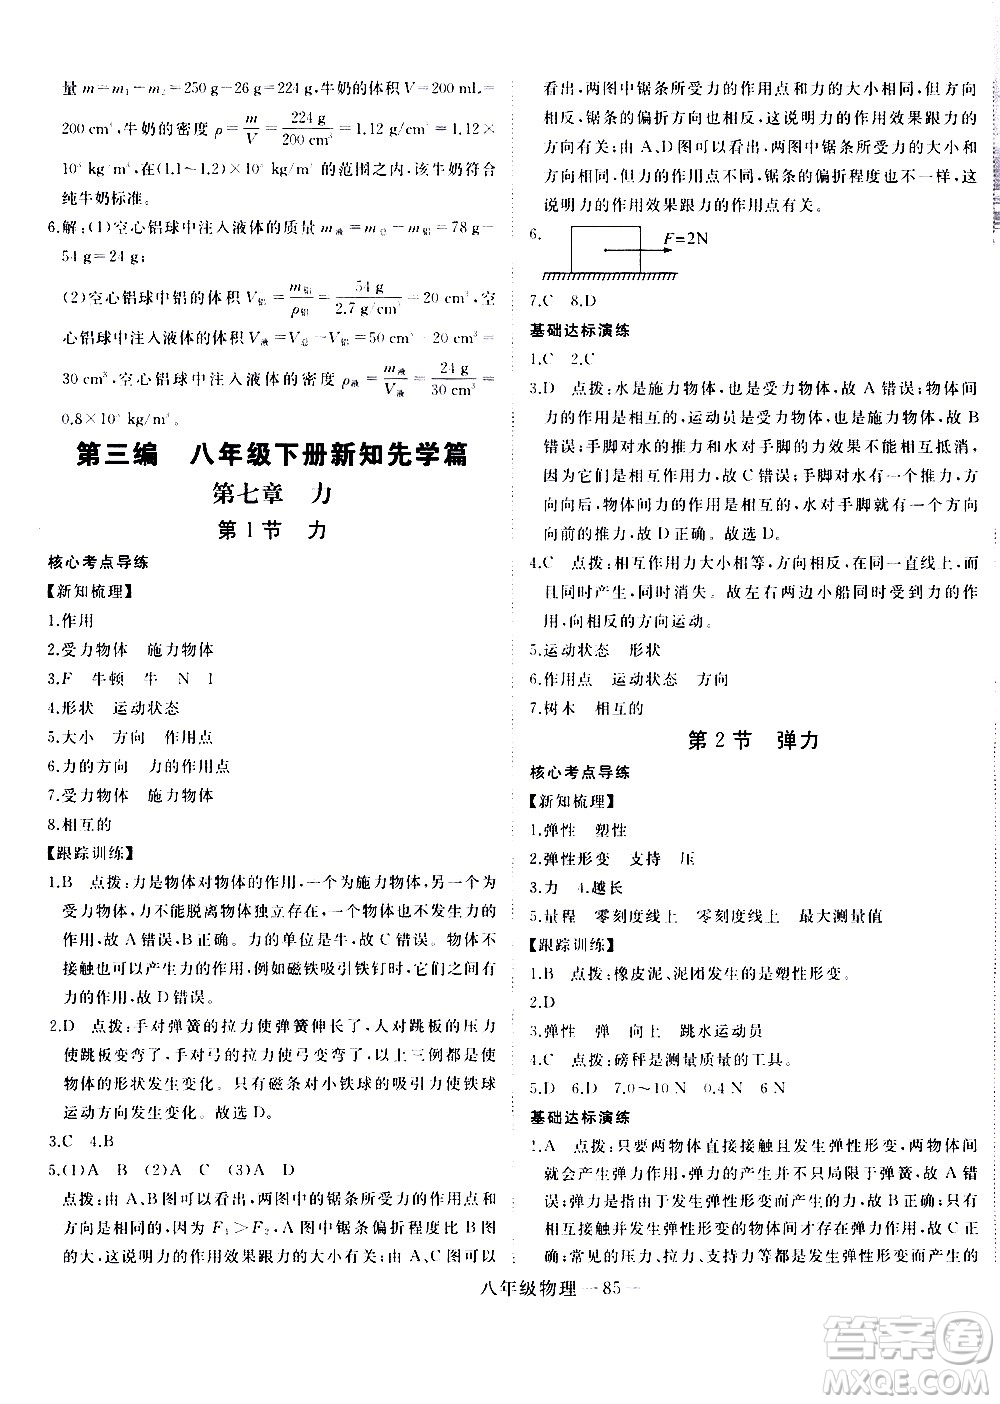 量 m=m₁-m₂=250 g-26 g=224 g,牛奶的体积 V=200 mL=
200 cm³,牛奶的密度 ρ=m/V=224 g/200 cm³=1.12 g/cm³=1.12×
10³ kg/m³,在(1.1~1.2)×10³ kg/m³ 的范围之内,该牛奶符合
纯牛奶标准。
6.解:(1)空心铝球中注入液体的质量 m液=m总-m铝=78 g-
54 g=24 g;
(2)空心铝球中铝的体积 V铝=m铝/ρ铝=54 g/2.7 g/cm³=20 cm³,空
心铝球中注入液体的体积 V液=V总-V铝=50 cm³-20 cm³=
30 cm³,空心铝球中注入液体的密度 ρ液=m液/V液=24 g/30 cm³=
0.8×10³ kg/m³。
第三编 八年级下册新知先学篇
第七章 力
第1节 力
核心考点导练
【新知梳理】
1.作用
2.受力物体 施力物体
3.F 牛顿 牛 N 1
4.形状 运动状态
5.大小 方向 作用点
6.力的方向 力的作用点
7.受力物体 施力物体
8.相互的
【跟踪训练】
1.B 点拨:力是物体对物体的作用,一个为施力物体,一个为
受力物体,力不能脱离物体独立存在,一个物体也不发生力的
作用,故 A 错误,B 正确。力的单位是牛,故 C 错误。物体不
接触也可以产生力的作用,例如磁铁吸引铁钉时,它们间有
力的作用,故 D 错误。
2.D 点拨:手对弹簧的拉力使弹簧伸长了,人对跳板的压力
使跳板变弯了,手对弓的拉力使弓变弯了,以上三例都是使
物体的形状发生变化。只有磁条对小铁球的吸引力使铁球
运动方向发生变化。故选 D。
3.C 4.B
5.(1)A B (2)A C (3)A D
点拨:由 A、B 图可以看出,两图中锯条所受力的作用点和
力的方向相同,因为 F₁>F₂,A 图中锯条偏折程度比 B 图
的大,这说明力的作用效果跟力的大小有关;由 A、C 图可以
看出,两图中锯条所受力的作用点和力的大小相同,但方向
相反,锯条的偏折方向相反,这说明力的作用效果跟力的方
向有关;由 A、D 图可以看出,两图中锯条所受力的大小、方
向相同,但力的作用点不同,锯条的偏折程度也不一样,这
说明力的作用效果跟力的作用点有关。
6.
F=2N
7.C 8.D
基础达标演练
1.C 2.C
3.D 点拨:水是施力物体,也是受力物体,故 A 错误;物体间
力的作用是相互的,运动员是受力物体,也是施力物体,故 B
错误;手脚对水的推力和水对手脚的力效果不能相互抵消,
因为它们作用在不同的物体上,故 C 错误;手脚对水有一个
向后的推力,物体间力的作用是相互的,水对手脚有一个向
向前的推力,故 D 正确。故选 D。
4.C 点拨:相互作用力大小相等,方向相反,在同一直线上,
而且同时产生,同时消失。故左右两边小船同时受到力的作
用,向相反的方向运动。
5.运动状态 形状
6.作用点 运动状态 方向
7.树木 相互的
第2节 弹力
核心考点导练
【新知梳理】
1.弹性 塑性
2.弹性形变 支持 压
3.力 4.越长
5.量程 零刻度线上 零刻度线上 最大测量值
【跟踪训练】
1.B 点拨:橡皮泥、泥团发生的是塑性形变。
2.D
3.弹性 弹 向上 跳水运动员
4.C 点拨:磅秤是测量质量的工具。
5.D 6.D 7.0~10 N 0.4 N 6 N
基础达标演练
1.A 点拨:只要两物体直接接触且发生弹性形变,两物体间
就会产生弹力作用,弹力的产生并不只局限于弹簧,故 A 错
误;弹力是物体由于发生弹性形变而产生的,故 B 正确;只有
相互接触并发生弹性形变的物体间才存在弹力作用,故 C 正
确;常见的压力、拉力、支持力等都是发生弹性形变而产生的
八年级物理 — 85 —
答案圈
MXQE.COM